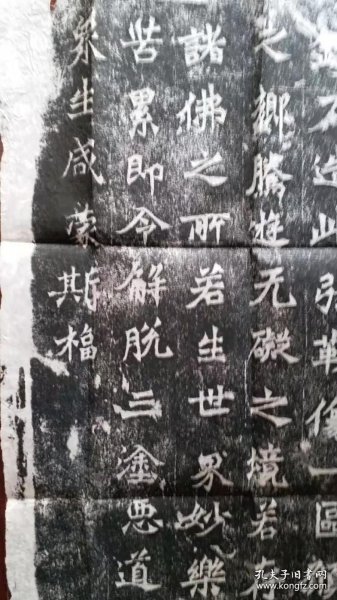 石造此弥勒像一區
之鄉騰遊无礙之境若
諸佛之所若生世界妙樂
苦累即令解脱三塗惡道
衆生咸蒙斯福
孔夫子旧书网
www.kongfz.com